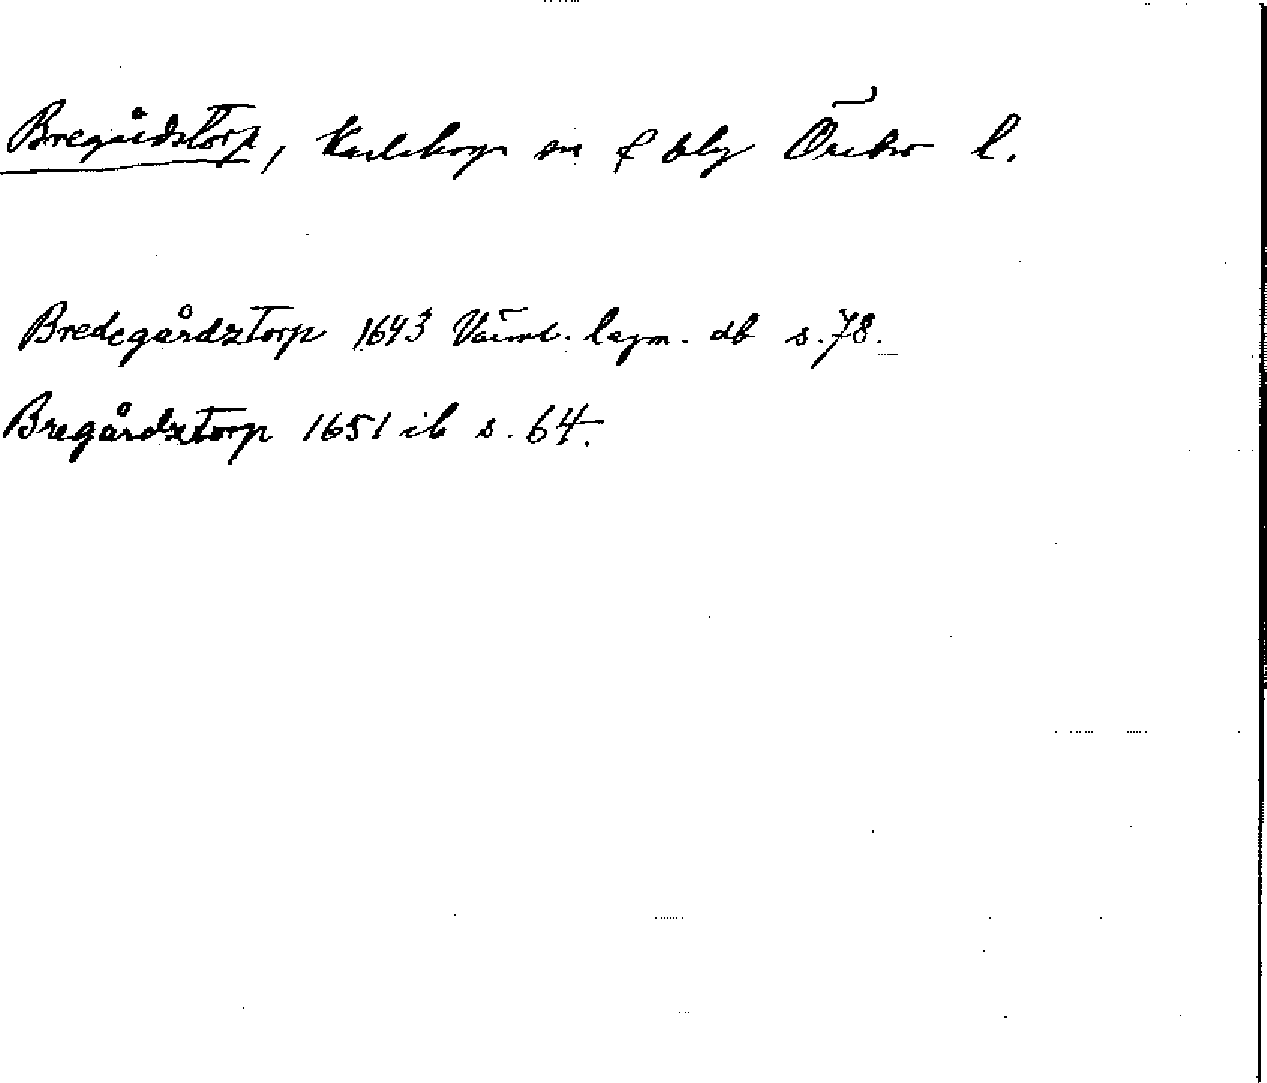 Bregårdstorp, Karlskoga sn o blg Örebro l.
Bredegårdztorp 1643 Värml. lagm. db s. 78.
Bregårdztorp 1651 ib s. 64.